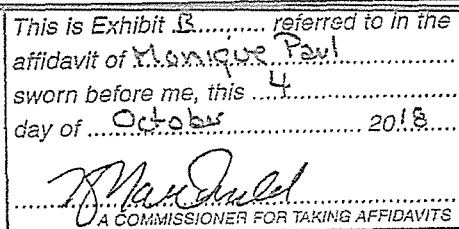 This is Exhibit B.......... referred to in the
affidavit of Monique Paul
sworn before me, this ....4
day of .......October....... 2018
A COMMISSIONER FOR TAKING AFFIDAVITS